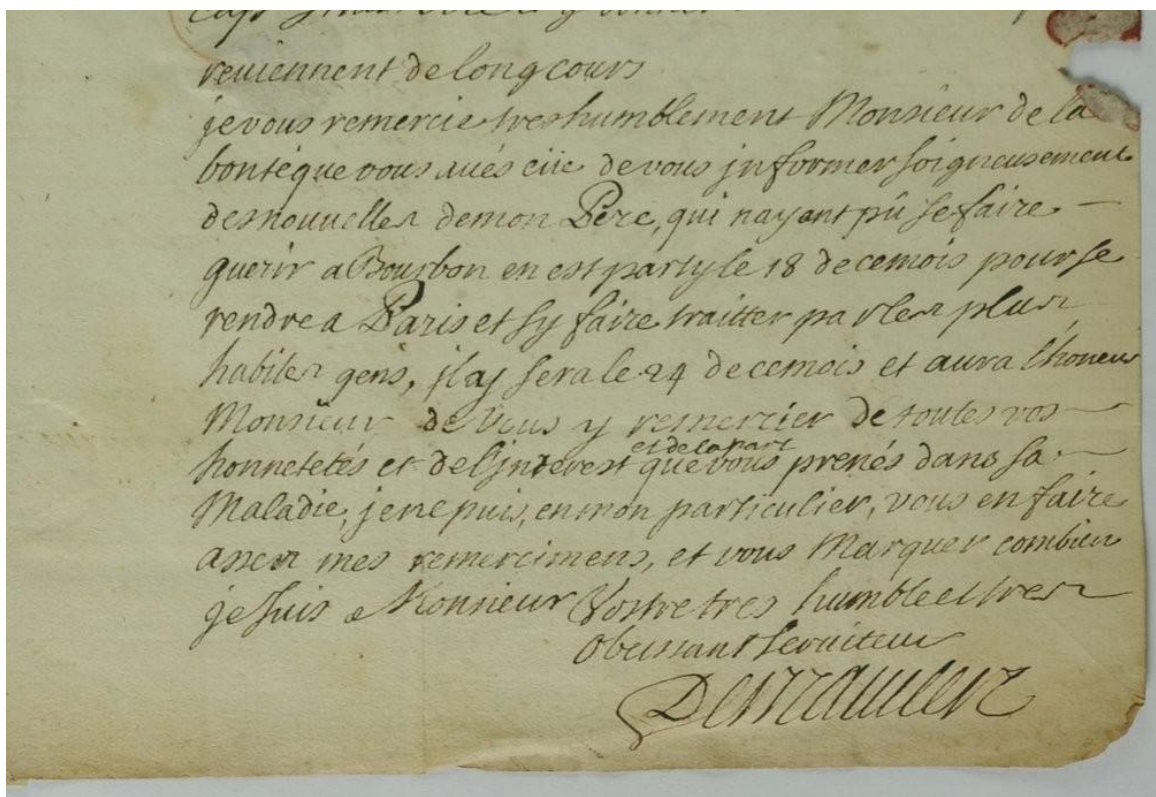 reuiennent de long cours
je vous remercie tres humblement Monsieur de la
bonté que vous aués eüe de vous jnformer soigneusement
des nouuelles de mon Pere, qui nayant pû se faire
guerir a Bourbon en est party le 18 de ce mois pour se
rendre a Paris et sy faire traitter par les plus
habiles gens, jl ay sera le 24 de ce mois et aura lhoneur
Monsieur de Vous y remercier de toutes vos
honnetetés et de l'jnterest et de la part que vous prenés dans sa
Maladie, je ne puis, en mon particulier, vous en faire
assez mes remercimens, et vous Marquer combien
je suis Monsieur Vostre tres humble et tres
Obeissant seruiteur